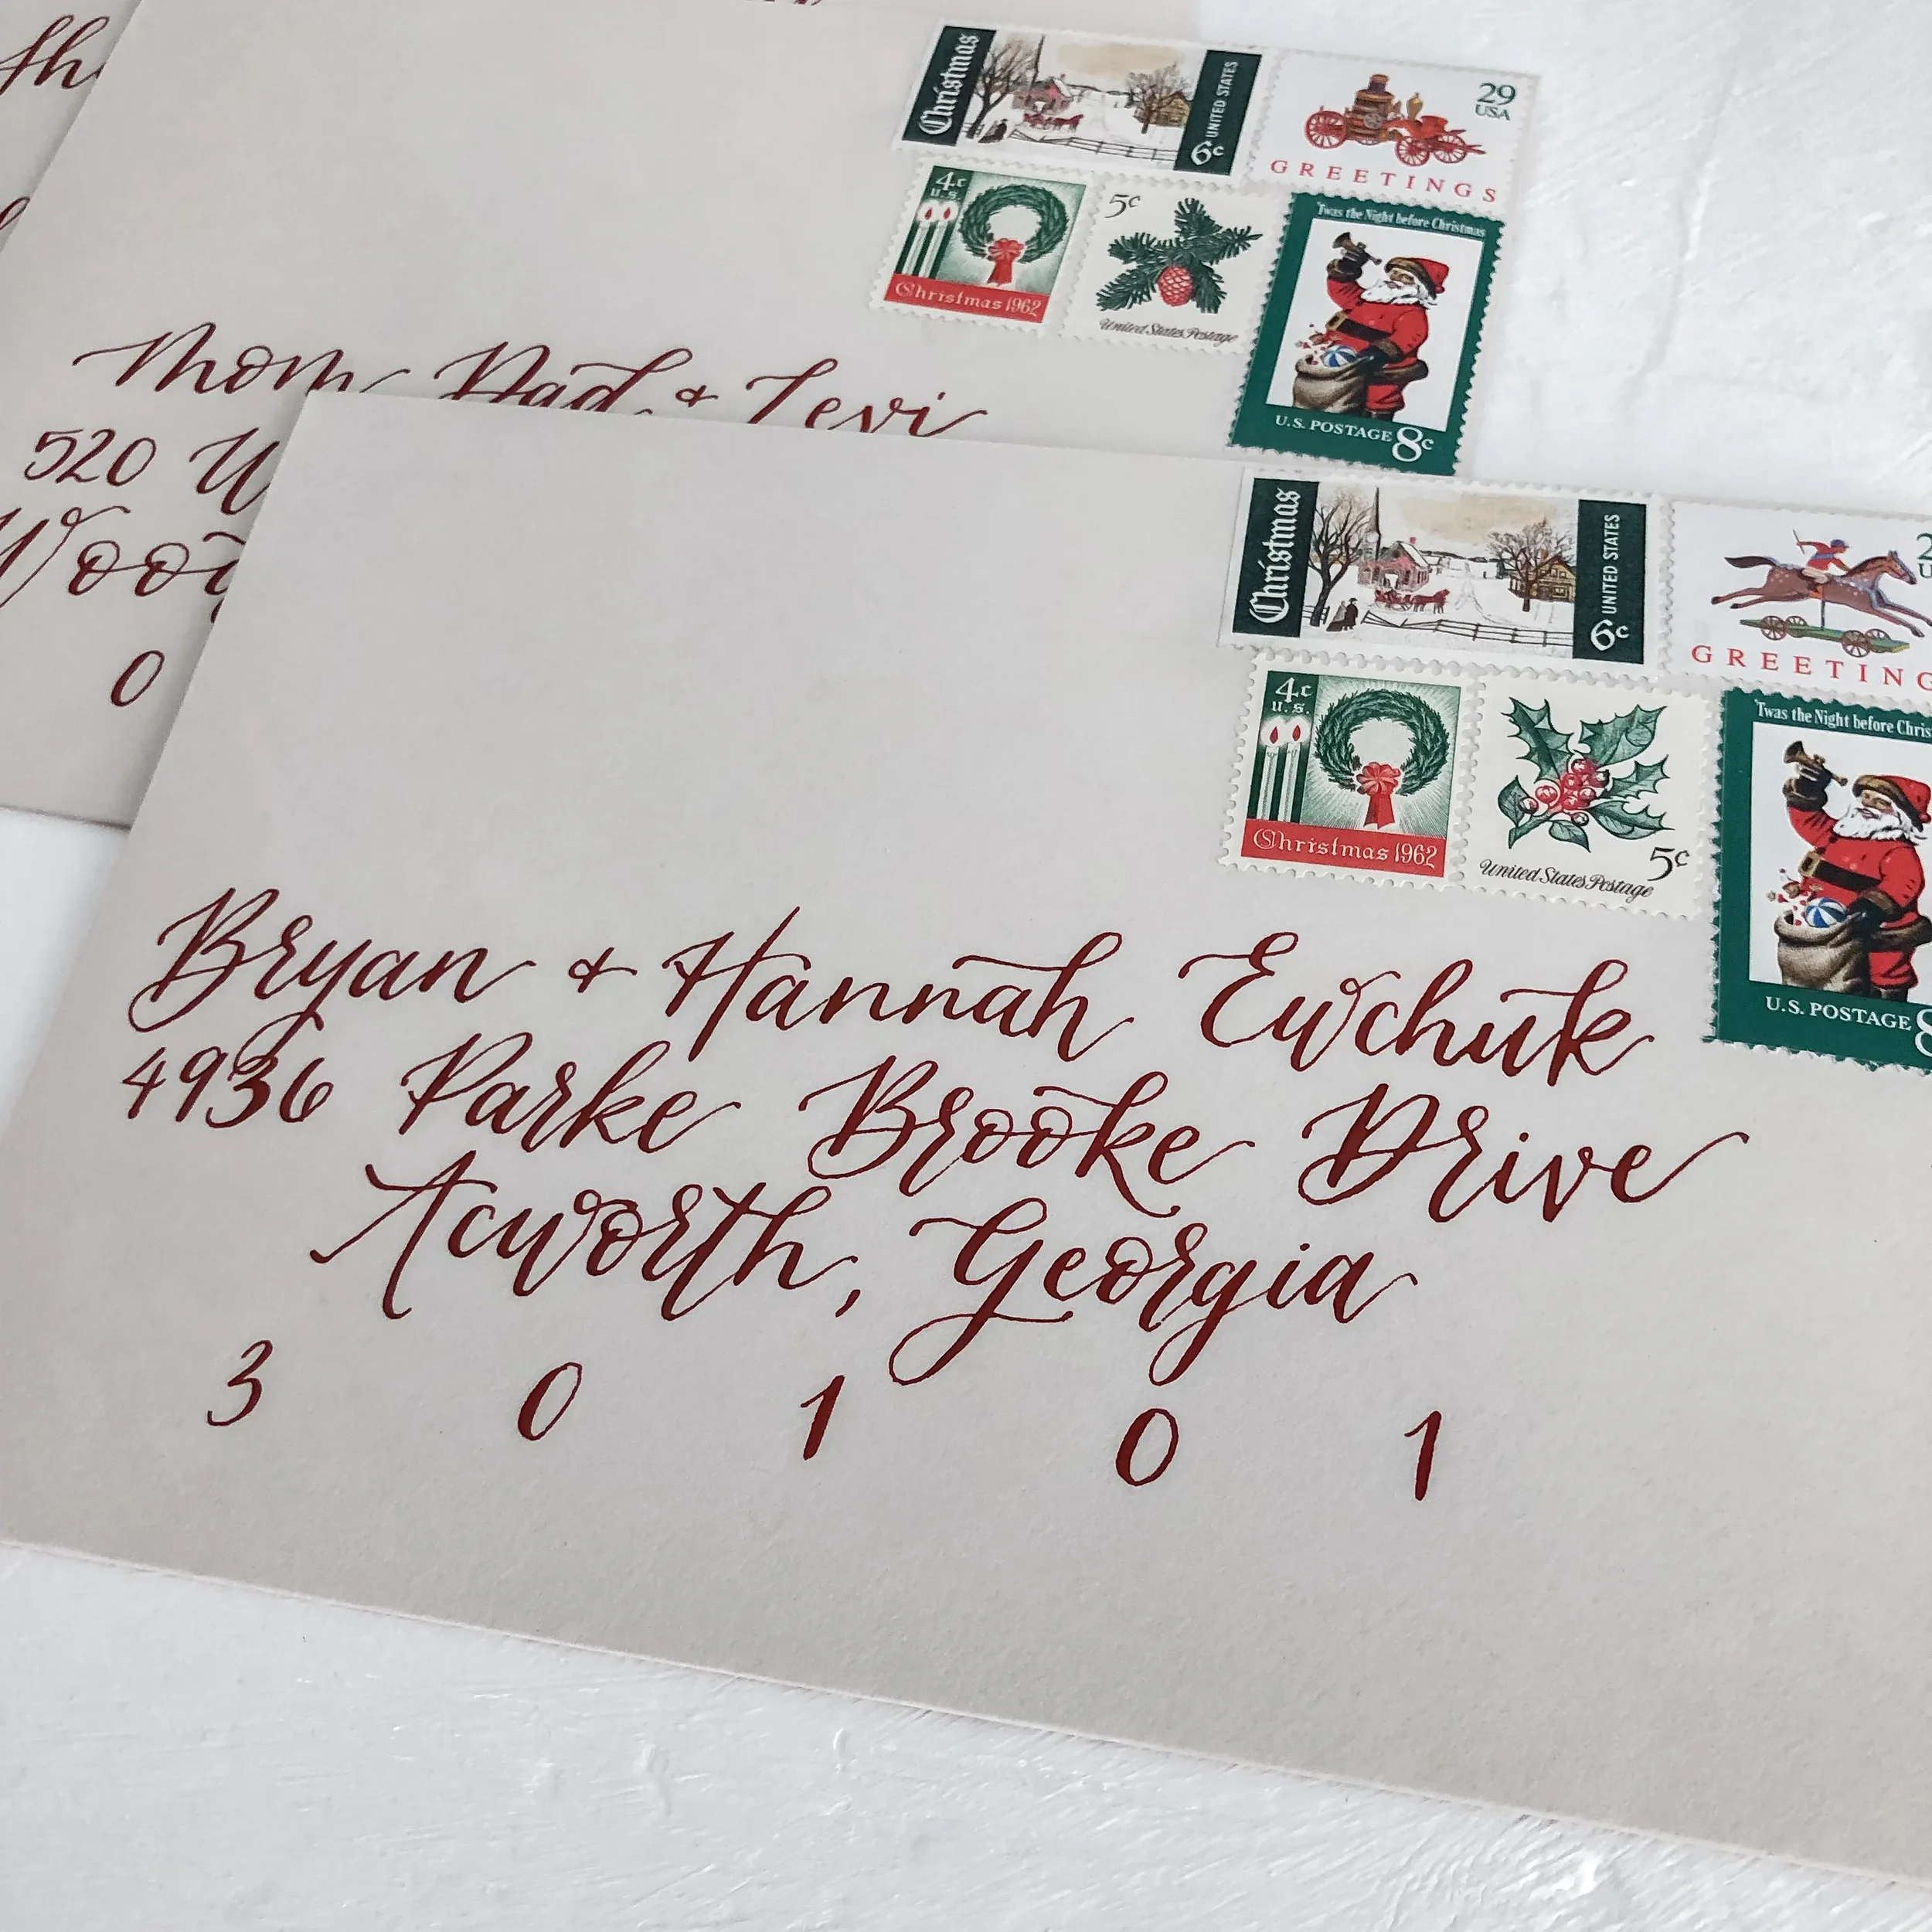 Christmas
UNITED STATES
6c
29
USA
GREETINGS
4c
U.S.
Christmas 1962
5c
United States Postage
'Twas the Night before Christmas
U.S. POSTAGE 8c
Mom, Dad & Levi
520
0
Christmas
UNITED STATES
6c
4c
U.S.
Christmas 1962
United States Postage
5c
'Twas the Night before
U.S. POSTAGE
Bryan & Hannah Ewchuk
4936 Parke Brooke Drive
Acworth, Georgia
3 0 1 0 1